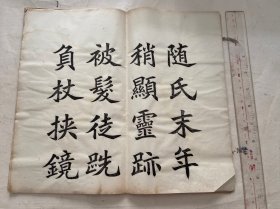 随氏末年
稍顯靈跡
被髮徒跣
負杖挾鏡